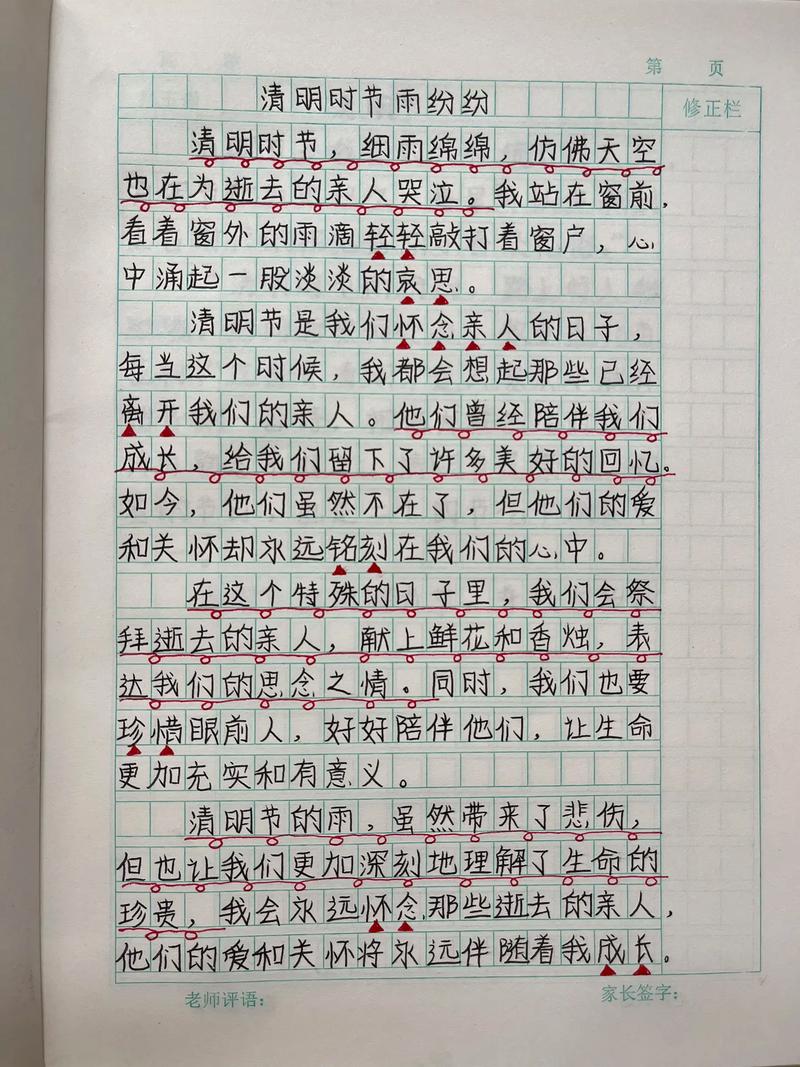 第 页
修正栏
清明时节雨纷纷
清明时节，细雨绵绵，仿佛天空
也在为逝去的亲人哭泣。我站在窗前，
看着窗外的雨滴轻轻敲打着窗户，心
中涌起一股淡淡的哀思。
清明节是我们怀念亲人的日子，
每当这个时候，我都会想起那些已经
离开我们的亲人。他们曾经陪伴我们
成长，给我们留下了许多美好的回忆。
如今，他们虽然不在了，但他们的爱
和关怀却永远铭刻在我们的心中。
在这个特殊的日子里，我们会祭
拜逝去的亲人，献上鲜花和香烛，表
达我们的思念之情。同时，我们也要
珍惜眼前人，好好陪伴他们，让生命
更加充实和有意义。
清明节的雨，虽然带来了悲伤，
但也让我们更加深刻地理解了生命的
珍贵，我会永远怀念那些逝去的亲人，
他们的爱和关怀将永远伴随着我成长。
老师评语： 家长签字：